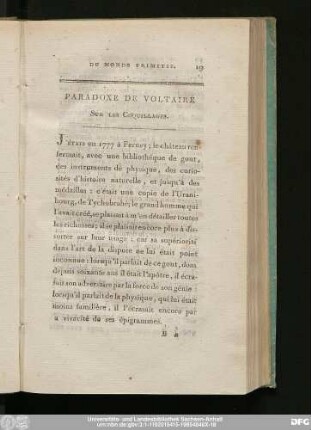 DU MONDE PRIMITIF. 19
PARADOXE DE VOLTAIRE
SUR LES COQUILLAGES.
J'étais en 1777 à Ferney; le château ren-
fermait, avec une bibliothèque de gout,
des instruments de physique, des curio-
sités d'histoire naturelle, et jusqu'à des
médailles: c'était une copie de l'Urani-
bourg, de Tychobrahé; le grand homme qui
l'avait créé, se plaisant à m'en détailler toutes
les richesses; il se plaisait encore plus à dis-
serter sur leur usage: car sa supériorité
dans l'art de la dispute ne lui était point
inconnue: lorsqu'il parlait de ce gout, dont
depuis soixante ans il était l'apôtre, il écra-
sait son adversaire par la force de son génie:
lorsqu'il parlait de la physique, qui lui était
moins familière, il l'écrasait encore par
la vivacité de ses épigrammes.
B 2
Universitäts- und Landesbibliothek Sachsen-Anhalt
DFG